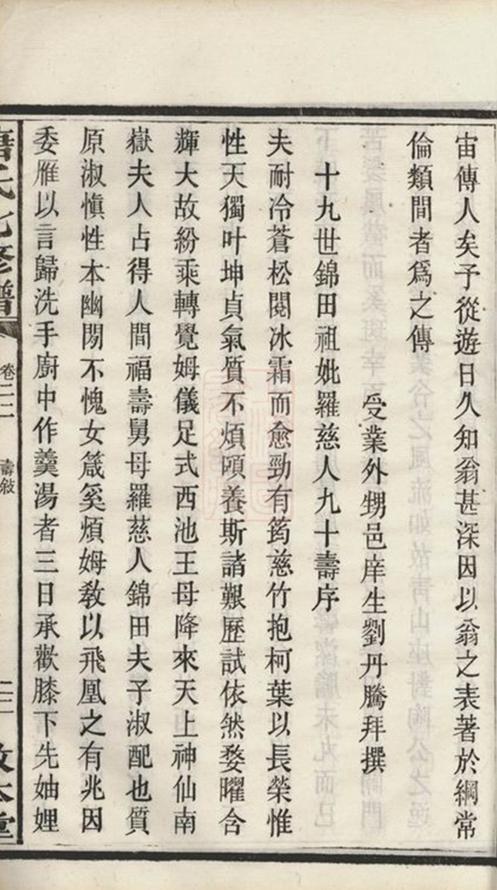 宙傳人矣予從遊日久知翁甚深因以翁之表著於綱常
倫類間者爲之傳
受業外甥邑庠生劉丹騰拜撰
十九世錦田祖妣羅慈人九十壽序
夫耐冷蒼松閱冰霜而愈勁有筠慈竹抱柯葉以長榮惟
性天獨叶坤貞氣質不煩頤養斯諸艱歷試依然婺曜含
輝大故紛乘轉覺姆儀足式西池王母降來天上神仙南
嶽夫人占得人間福壽舅母羅慈人錦田夫子淑配也質
原淑愼性本幽閒不愧女箴奚煩姆敎以飛凰之有兆因
委雁以言歸洗手廚中作羹湯者三日承歡膝下先妯娌
氏七修譜
卷二二
壽敘
敘本堂